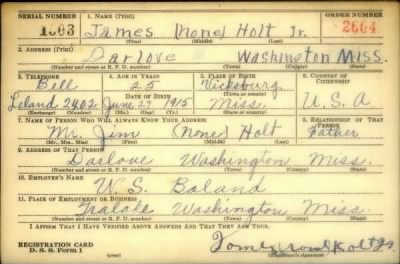 SERIAL NUMBER 1. NAME (Print) ORDER NUMBER
1503 James (None) Holt Jr. 2664
(First) (Middle) (Last)
2. ADDRESS (Print)
Darlove Washington Miss.
(Number and street or R. F. D. number) (Town) (County) (State)
3. TELEPHONE 4. AGE IN YEARS 5. PLACE OF BIRTH 6. COUNTRY OF CITIZENSHIP
Bell 25 Vicksburg
DATE OF BIRTH (Town or county)
Leland 2402 June 27 1915 Miss. U.S.A
(Exchange) (Number) (Mo.) (Day) (Yr.) (State or country)
7. NAME OF PERSON WHO WILL ALWAYS KNOW YOUR ADDRESS 8. RELATIONSHIP OF THAT PERSON
Mr. Jim (None) Holt Father
(Mr., Mrs., Miss) (First) (Middle) (Last)
9. ADDRESS OF THAT PERSON
Darlove Washington Miss.
(Number and street or R. F. D. number) (Town) (County) (State)
10. EMPLOYER'S NAME
W. S. Boland
11. PLACE OF EMPLOYMENT OR BUSINESS
Tralake Washington Miss
(Number and street or R. F. D. number) (Town) (County) (State)
I AFFIRM THAT I HAVE VERIFIED ABOVE ANSWERS AND THAT THEY ARE TRUE.
REGISTRATION CARD
D. S. S. Form 1
(Registrant's signature)